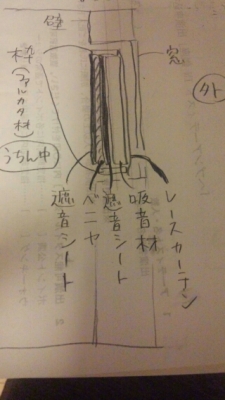 壁
窓
枠(ファルカタ材)
外
うちん中
遮音シート
ベニヤ
遮音シート
吸音材
レースカーテン